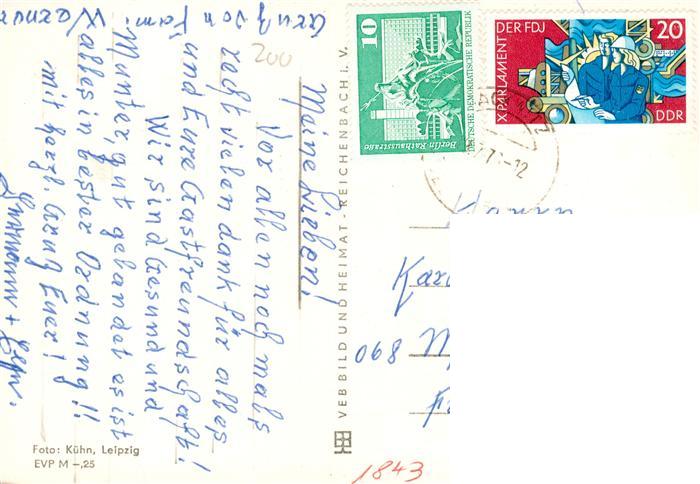 Meine Lieben!
Vor allen noch mals
raßt vielen dank für alles
und Eure Gastfreundschaft!
Wir sind Gesund und
Munter, gut gelandet es ist
alles in bester Ordnung!!
mit herzl. Gruß Euer!
Gruß von Fam.
200
VEB BILD UND HEIMAT · REICHENBACH i. V.
10
DEUTSCHE DEMOKRATISCHE REPUBLIK
Berlin Rathausstrasse
X.PARLAMENT DER FDJ
20
DDR
-12
Kar
068
1843
Foto: Kühn, Leipzig
EVP M –,25